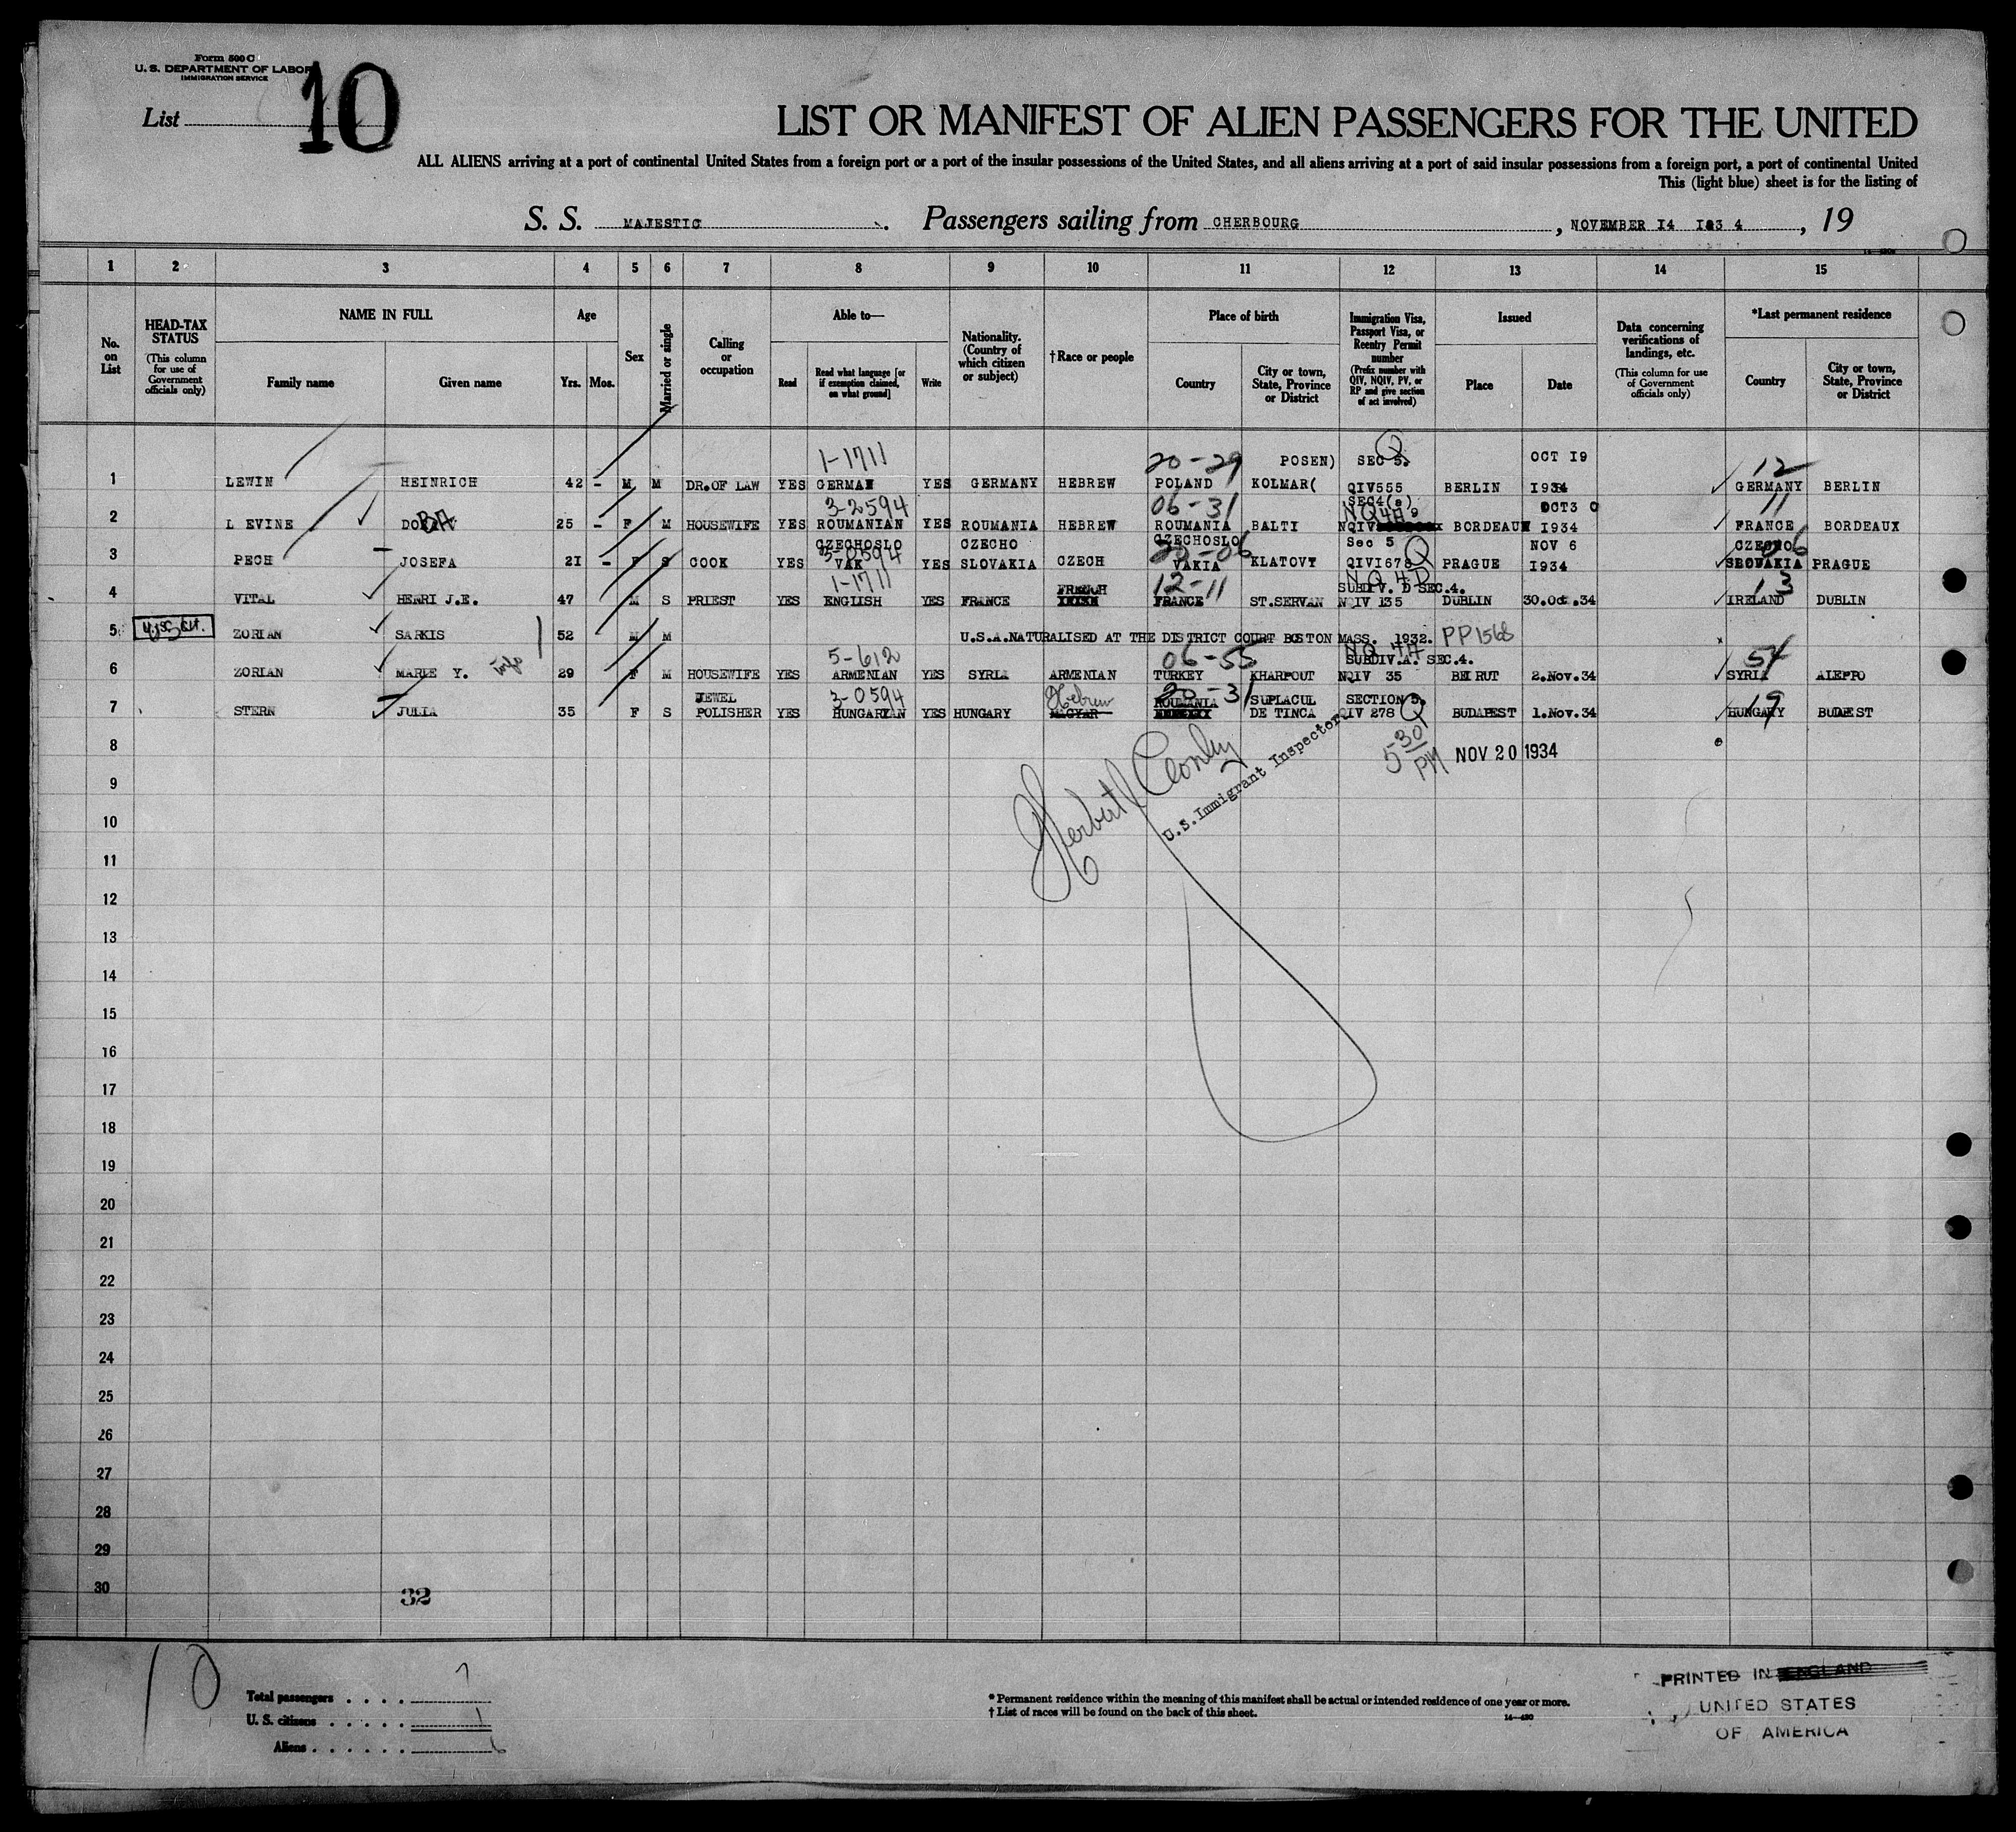 Form 500 C
U. S. DEPARTMENT OF LABOR
IMMIGRATION SERVICE
List 10
LIST OR MANIFEST OF ALIEN PASSENGERS FOR THE UNITED
ALL ALIENS arriving at a port of continental United States from a foreign port or a port of the insular possessions of the United States, and all aliens arriving at a port of said insular possessions from a foreign port, a port of continental United
This (light blue) sheet is for the listing of
S. S. MAJESTIC Passengers sailing from CHERBOURG, NOVEMBER I4 I934, 19
1 2 3 4 5 6 7 8 9 10 11 12 13 14 15
No. on List
HEAD-TAX STATUS (This column for use of Government officials only)
NAME IN FULL
Family name Given name
Age
Yrs. Mos.
Sex
Married or single
Calling or occupation
Able to—
Read Read what language [or if exemption claimed, on what ground] Write
Nationality. (Country of which citizen or subject)
†Race or people
Place of birth
Country City or town, State, Province or District
Immigration Visa, Passport Visa, or Reentry Permit number (Prefix number with QIV, NQIV, PV, or RP and give section of act involved)
Issued
Place Date
Data concerning verifications of landings, etc. (This column for use of Government officials only)
*Last permanent residence
Country City or town, State, Province or District
1-1711 20-29 POSEN) SEC 5. Q OCT I9 12
1 LEWIN HEINRICH 42 - M M DR.OF LAW YES GERMAN YES GERMANY HEBREW POLAND KOLMAR( QIV555 BERLIN I934 GERMANY BERLIN
3-2594 06-31 SEC4(a) NQ4A OCT3 0 11
2 L EVINE BA 25 - F M HOUSEWIFE YES ROUMANIAN YES ROUMANIA HEBREW ROUMANIA BALTI NQIV BORDEAUX I934 FRANCE BORDEAUX
CZECHOSLO 5-0594 CZECHO CZECHOSLO 20-06 Sec 5 Q NOV 6 CZECHO 06
3 PECH JOSEFA 2I - F S COOK YES VAK YES SLOVAKIA CZECH VAKIA KLATOVY QIVI678 PRAGUE I934 SLOVAKIA PRAGUE
1-1711 FRENCH 12-11 NQ 4D SUBDIV. D SEC.4. 13
4 VITAL HENRI J.E. 47 M S PRIEST YES ENGLISH YES FRANCE IRISH FRANCE ST.SERVAN NQIV 135 DUBLIN 30.Oct.34 IRELAND DUBLIN
5 ZORIAN SARKIS 52 M M U.S.A.NATURALISED AT THE DISTRICT COURT BOSTON MASS. 1932. PP1568
5-612 06-55 NQ 4A SUBDIV.A. SEC.4. 54
6 ZORIAN MARIE Y. 29 F M HOUSEWIFE YES ARMENIAN YES SYRIA ARMENIAN TURKEY KHARPOUT NQIV 35 BEIRUT 2.Nov.34 SYRIA ALEPPO
JEWEL 3-0594 Hebrew 20-31 ROUMANIA SUPLACUL SECTION 5. 19
7 STERN JULIA 35 F S POLISHER YES HUNGARIAN YES HUNGARY MAGYAR DE TINCA QIV 278 Q BUDAPEST 1.Nov.34 HUNGARY BUDAPEST
8 5 30 PM NOV 20 1934
U.S.Immigrant Inspector.
9
10
11
12
13
14
15
16
17
18
19
20
21
22
23
24
25
26
27
28
29
30
32
10
Total passengers . . . . 7
U. S. citizens . . . . . 1
Aliens . . . . . . 6
* Permanent residence within the meaning of this manifest shall be actual or intended residence of one year or more.
† List of races will be found on the back of this sheet.
14—430
PRINTED IN ENGLAND
UNITED STATES
OF AMERICA